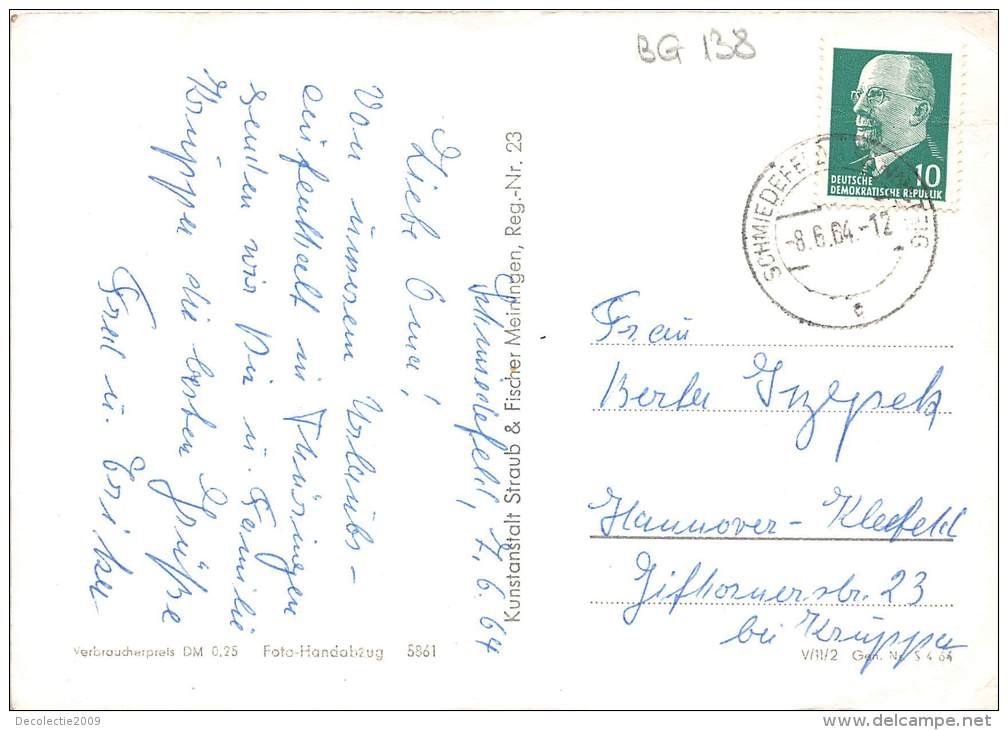 BG 138
DEUTSCHE
DEMOKRATISCHE REPUBLIK
10
SCHMIEDEFELD
-8.6.64.-12
c
Schmiedefeld, 7.6.64
Liebe Oma!
Von unserem Urlaubs-
aufenthalt in Thüringen
senden wir Dir u. Familie
Kruppa die besten Grüße
Fred u. Erika
Kunstanstalt Straub & Fischer Meiningen, Reg.-Nr. 23
Frau
Berta
Hannover-Kleefeld
Gifhornerstr. 23
bei Kruppa
Verbraucherpreis DM 0,25 Foto-Handabzug 5861
V/11/2 Gen. Nr. S 4 64
Decolectie2009
http://www.delcampe.net